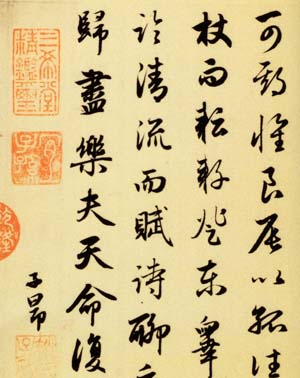 可期懷良辰以孤往
杖而耘耔登東皋
臨清流而賦詩聊
歸盡樂夫天命復
子昂
三希堂精鑑璽